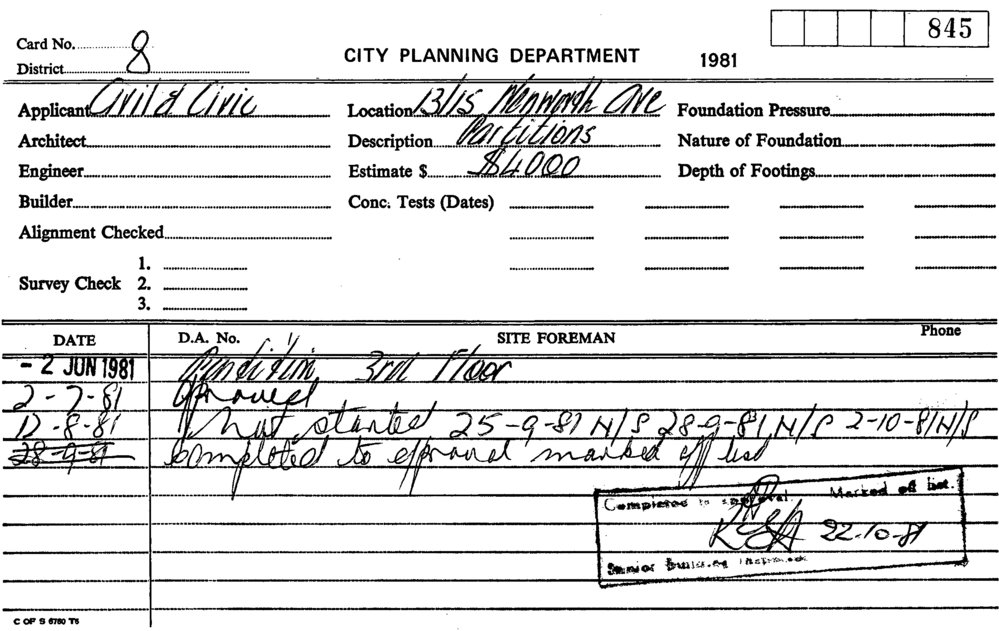 845
Card No. 8
District
CITY PLANNING DEPARTMENT 1981
Applicant Civil & Civic
Location 13/15 Wentworth Ave
Foundation Pressure
Architect
Description Partitions
Nature of Foundation
Engineer
Estimate $ $4000
Depth of Footings
Builder
Conc. Tests (Dates)
Alignment Checked
Survey Check 1.
2.
3.
DATE D.A. No. SITE FOREMAN Phone
- 2 JUN 1981 3rd Floor
2-7-81 approved
12-8-81 Not started 25-9-81 N/S 28-9-81 N/S 2-10-81 N/S
28-9-81 Completed to approval marked off list
Completed to approval. Marked off list.
22-10-81
Senior Building
C OF S 6780 T5